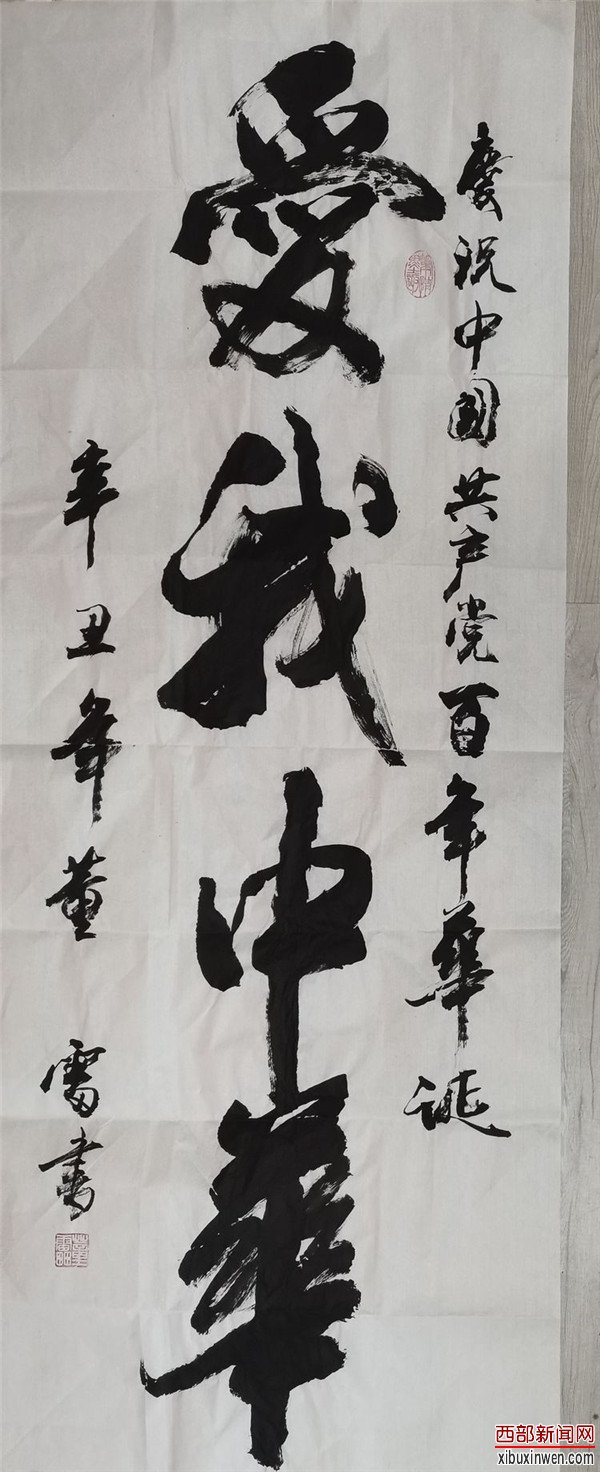 慶祝中国共产党百年華诞
愛我中華
辛丑年董雷書
西部新闻网
xibuxinwen.com